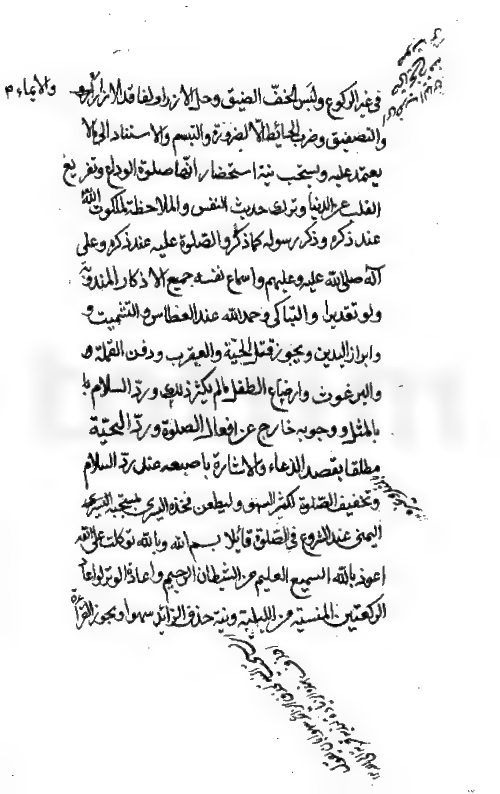 في غير الركوع ولبس الخف الضيق وحل الازرار لفاقد الازار والايماء
والتصفيق وضرب الحائط الا لضرورة والتبسم والاستناد الى ما لا
يعتمد عليه ويستحب نية استحضار انها صلوة الوداع وتفريغ
القلب عن الدنيا وترك حديث النفس والملاحظة لملكوت الله
عند ذكره وذكر رسوله كما ذكر والصلوة عليه عند ذكره وعلى
آله صلى الله عليه وعليهم واسماع نفسه جميع الاذكار المندوبة
ولو تقديرا والتباكي وحمد الله عند العطاس والتشميت و
وابراز اليدين ويجوز قتل الحية والعقرب ودفن القملة و
والبرغوث وارضاع الطفل ما لم يكثر ذلك ورد السلام با
بالمثل ووجوبه خارج عن افعال الصلوة ورد التحية
مطلقا بقصد الدعاء والاشارة باصبعه عند رد السلام
وتخفيف الصلوة لكثير السهو وليطعن فخذه اليسرى بمسبحته اليسرى
اليمنى عند الشروع في الصلوة قائلا بسم الله وبالله توكلت على الله
اعوذ بالله السميع العليم من الشيطان الرجيم واعادة الوتر لو اعاد
الركعتين المنسية من الليلية ونية حذف الزائد سهوا ويجوز القراءة